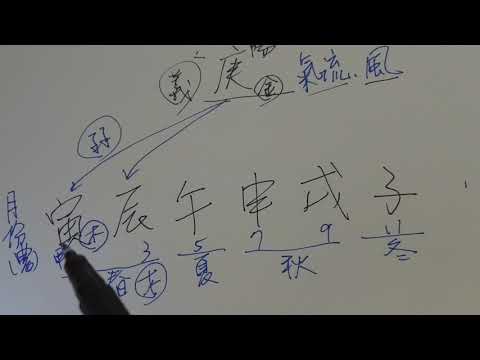 陽
義 庚 金 氣流.風
弱
寅 木 辰 午 申 戌 子
月令
3 5 7 9 11
春 木 夏 秋 冬